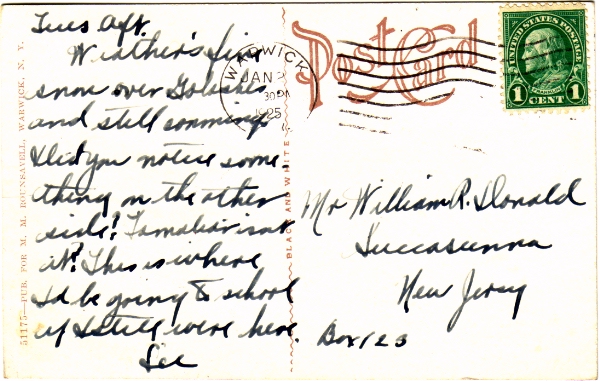 Tues Aft.
Weather's fine
snow over
and still
Did you notice some-
thing on the other
side? Familiar isn't
it? This is where
I'd be going to school
if I still were here.
Lee
51175—PUB. FOR M. M. ROUNSAVELL, WARWICK, N. Y.
BLACK AND WHITE
Post Card
WARWICK
JAN
30 PM
1925
UNITED STATES POSTAGE
FRANKLIN
1 CENT 1
Mr William R. Donald
Succasunna
New Jersey
Box 123